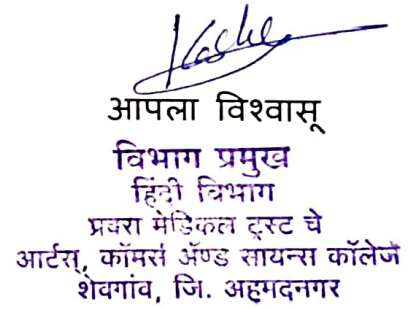 आपला विश्वासू
विभाग प्रमुख
हिंदी विभाग
प्रवरा मेडिकल ट्रस्ट चे
आर्टस्, कॉमर्स ॲण्ड सायन्स कॉलेज
शेवगांव, जि. अहमदनगर